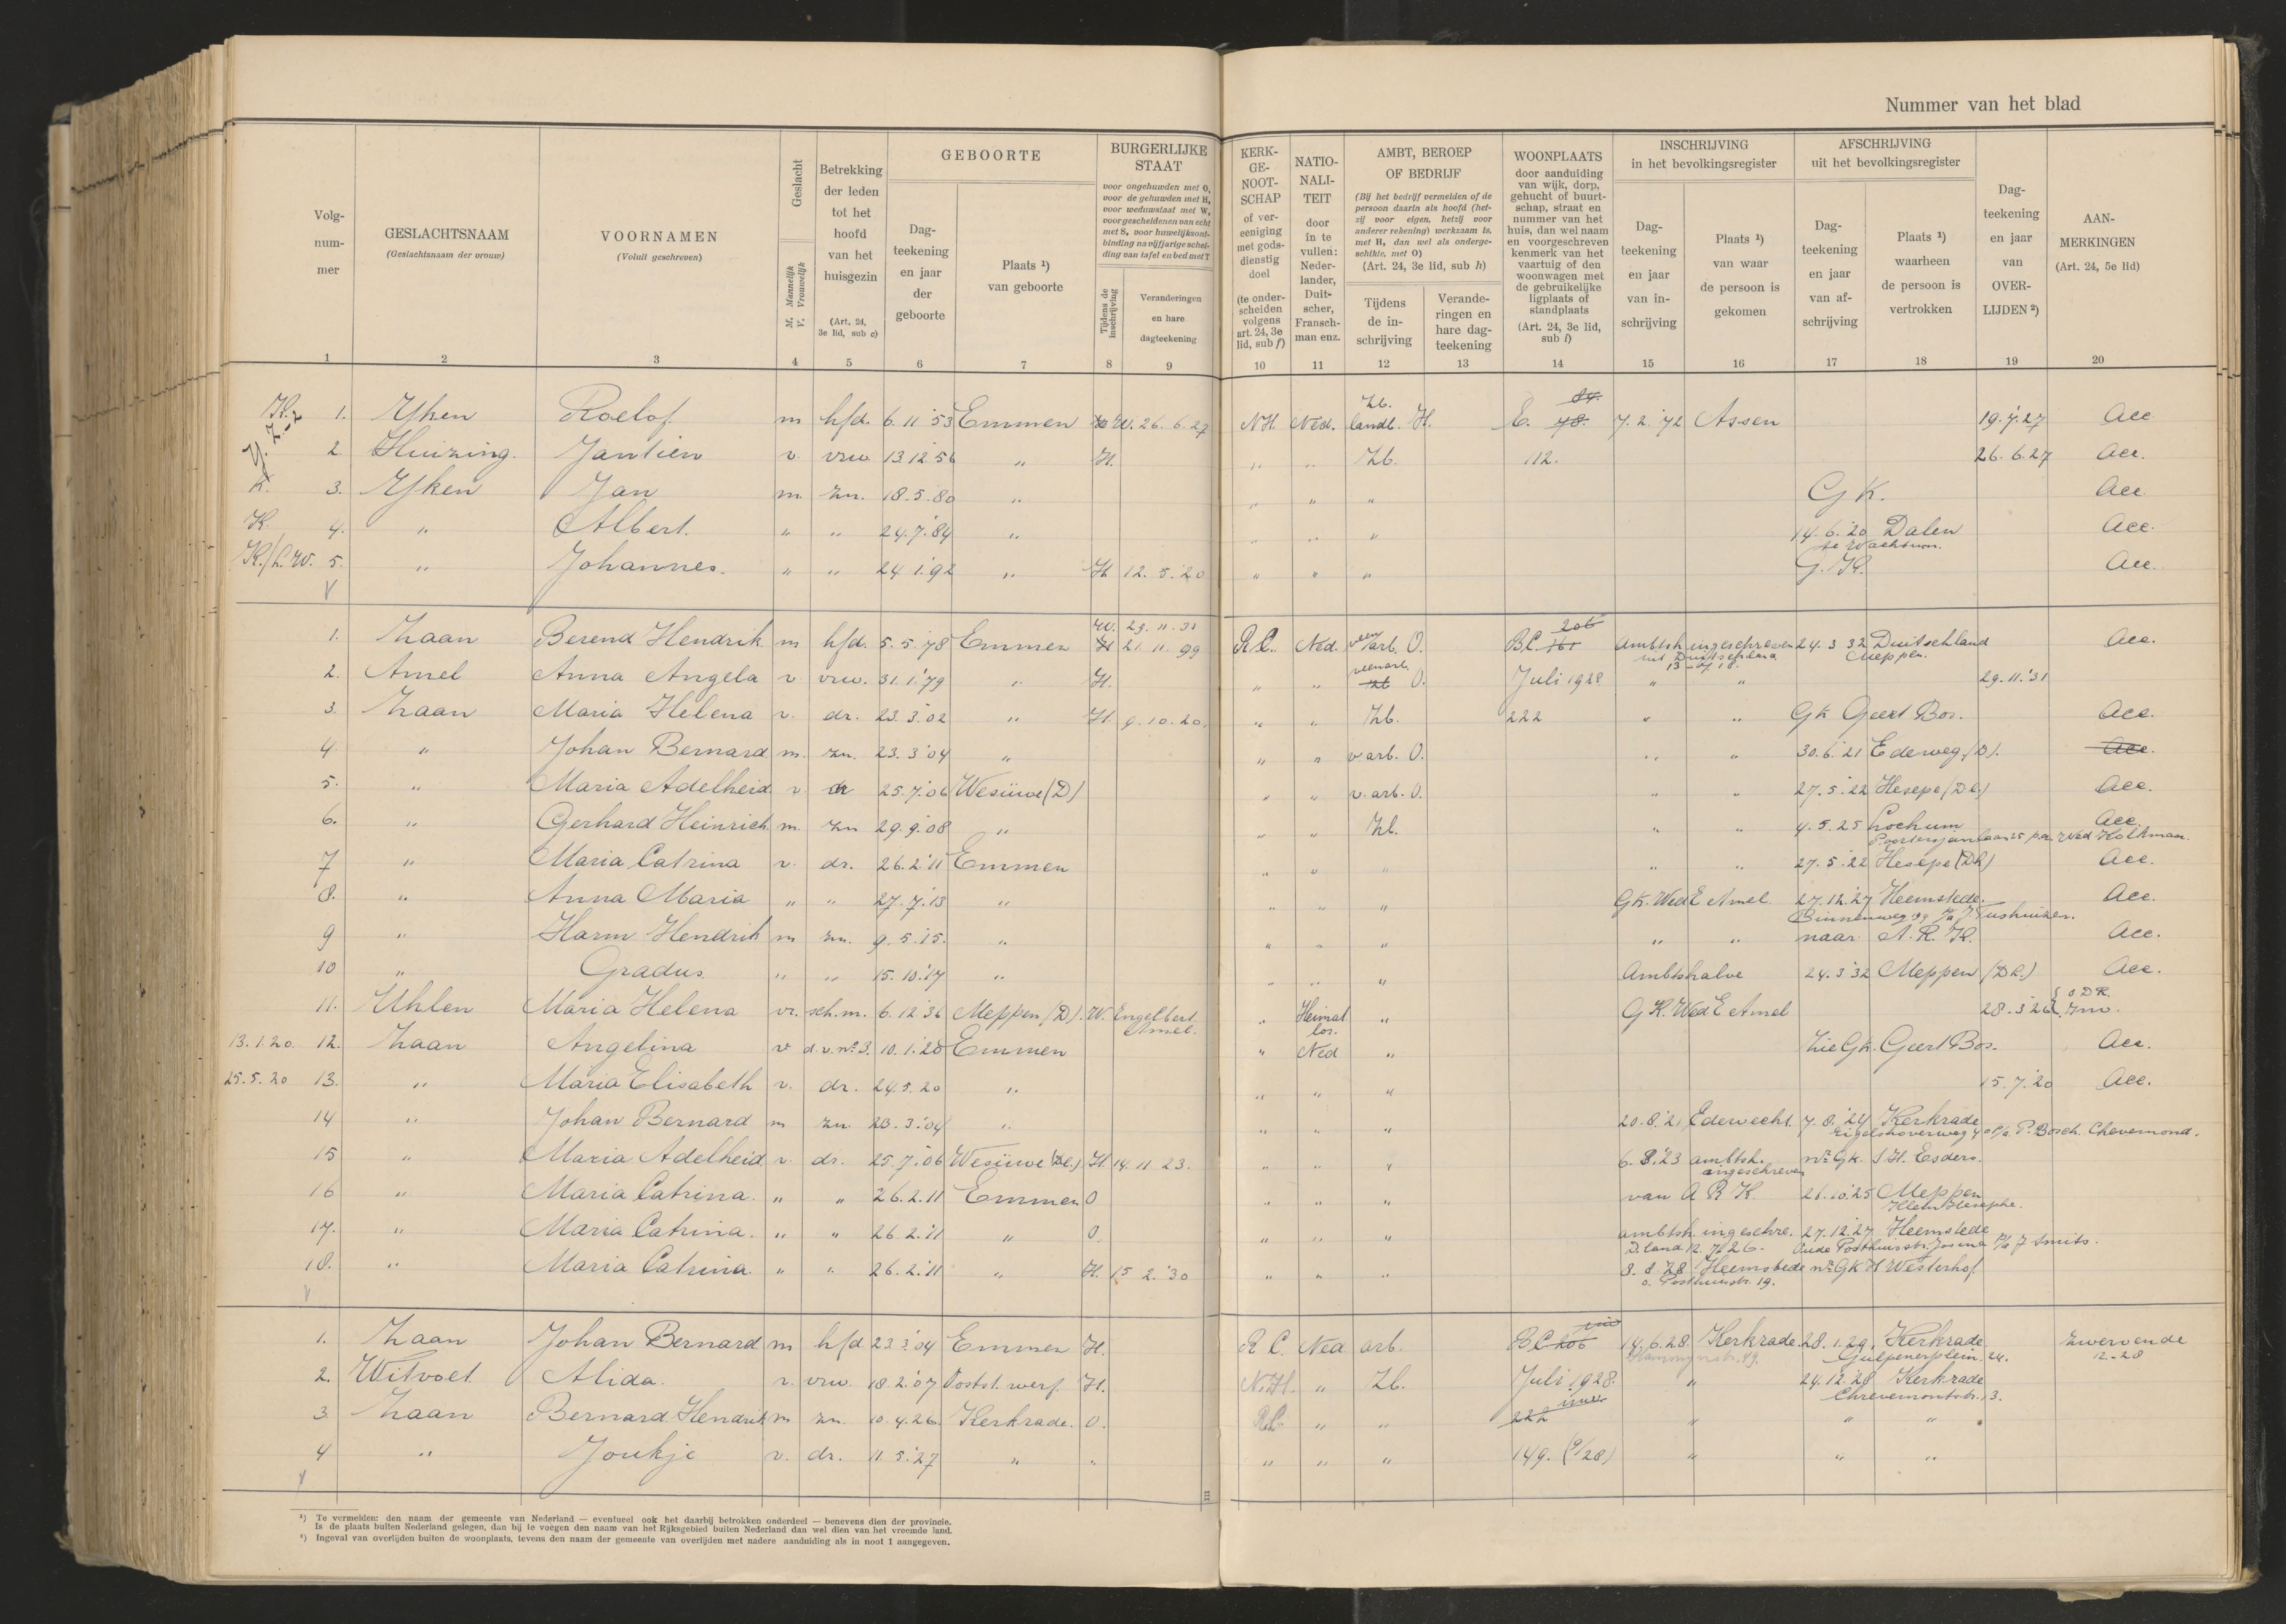 Nummer van het blad
Volg-
num-
mer
GESLACHTSNAAM
(Geslachtsnaam der vrouw)
VOORNAMEN
(Voluit geschreven)
Geslacht
M. Mannelijk
V. Vrouwelijk
Betrekking
der leden
tot het
hoofd
van het
huisgezin
(Art. 24,
3e lid, sub c)
GEBOORTE
Dag-
teekening
en jaar
der
geboorte
Plaats ¹)
van geboorte
BURGERLIJKE
STAAT
voor ongehuwden met O,
voor de gehuwden met H,
voor weduwstaat met W,
voor gescheidenen van echt
met S, voor huwelijksont-
binding na vijfjarige schei-
ding van tafel en bed met T
Tijdens de
inschrijving
Veranderingen
en hare
dagteekening
KERK-
GE-
NOOT-
SCHAP
of ver-
eeniging
met gods-
dienstig
doel
(te onder-
scheiden
volgens
art. 24, 3e
lid, sub f)
NATIO-
NALI-
TEIT
door
in te
vullen:
Neder-
lander,
Duit-
scher,
Fransch-
man enz.
AMBT, BEROEP
OF BEDRIJF
(Bij het bedrijf vermelden of de
persoon daarin als hoofd (het-
zij voor eigen, hetzij voor
anderer rekening) werkzaam is,
met H, dan wel als onderge-
schikte, met O)
(Art. 24, 3e lid, sub h)
Tijdens
de in-
schrijving
Verande-
ringen en
hare dag-
teekening
WOONPLAATS
door aanduiding
van wijk, dorp,
gehucht of buurt-
schap, straat en
nummer van het
huis, dan wel naam
en voorgeschreven
kenmerk van het
vaartuig of den
woonwagen met
de gebruikelijke
ligplaats of
standplaats
(Art. 24, 3e lid,
sub i)
INSCHRIJVING
in het bevolkingsregister
Dag-
teekening
en jaar
van in-
schrijving
Plaats ¹)
van waar
de persoon is
gekomen
AFSCHRIJVING
uit het bevolkingsregister
Dag-
teekening
en jaar
van af-
schrijving
Plaats ¹)
waarheen
de persoon is
vertrokken
Dag-
teekening
en jaar
van
OVER-
LIJDEN ²)
AAN-
MERKINGEN
(Art. 24, 5e lid)
1 2 3 4 5 6 7 8 9 10 11 12 13 14 15 16 17 18 19 20
1. Ijken Roelof m hfd. 6.11.'53 Emmen W. 26.6.27 N.H. Ned. landb. H. E. 78. 84. 7.2.'72 Assen 19.7.'27 Acc
2. Huizing. Jantien v. vrw. 13.12.56 " H. " " Zb. 112. 26.6.27 Acc.
3. Ijken Jan m. zn. 18.5.80 " " " " G K. Acc
K. 4. " Albert. " " 24.7.'84 " " " " 14.6.'20 Dalen Acc.
te Wachtum.
5. " Johannes. " " 24.1.'92 " H 12.5.'20 " " " G.K. Acc.
W. 29.11.31
1. Zaan Berend Hendrik m hfd. 5.5.'78 Emmen H 21.11.99 R.C. Ned. veenarb. O. B.C. 161 206 Ambtsh ingeschreven 24.3.32 Duitschland Acc.
uit Duitschland Meppen.
13-7-18.
2. Amel Anna Angela v. vrw. 31.1.'79 " H. " " veenarb. O. Juli 1928 " " 29.11.'31
3. Zaan Maria Helena v. dr. 23.3.'02 " H. 9.10.20. " " Zb. 222 " " Gk Geert Bos. Acc.
4. " Johan Bernard m. zn. 23.3'04 " " " v.arb. O. " " 30.6.'21 Ederweg (D). Acc.
5. " Maria Adelheid v. dr 25.7.'06 Wesüwe (D) " " v.arb. O. " " 27.5.'22 Hesepe (Dl.) Acc.
6. " Gerhard Heinrich m. zn 29.9.'08 " " " Zb. " " 4.5.25 Lochum Acc.
7 " Maria Catrina v. dr. 26.2.'11 Emmen " " " " " 27.5.'22 Hesepe (Dl) Acc.
8. " Anna Maria " " 27.7.'13 " " " " Gk. Wed E Amel. 27.12.'27 Heemstede. Acc.
Binnenweg 99 p/a J Tushuizen.
9 " Harm Hendrik m zn. 9.5.'15. " " " " " " naar A.R.K. Acc.
10 " Gradus. " " 15.10.'17 " " " " Ambtshalve 24.3'32 Meppen (Dl.) Acc.
11. Uhlen Maria Helena vr. sch.m. 6.12.'36 Meppen (D). W. Engelbert " Heimat " G K. Wed E Amel 28.3'26
Amel. los.
13.1.20. 12. Zaan Angelina v d.v.nº3. 10.1.'20 Emmen " Ned " Zie Gk. Geert Bos. Acc.
25.5.20 13. " Maria Elisabeth v. dr. 24.5.20 " " " " 15.7.'20 Acc.
14 " Johan Bernard m zn. 23.3.'04 " " " " 20.8.'21 Edewecht 7.8.'24 Kerkrade
Eigelshoverweg 40 P/a. P. Bosch. Chevremond.
15 " Maria Adelheid v. dr. 25.7.'06 Wesüwe (Dl.) H. 14.11.23. " " " 6.8.'23 ambtsh. nr Gk. J.H. Esders.
ingeschreven
16 " Maria Catrina. " " 26.2.11 Emmen O " " " van A R K. 26.10.'25 Meppen
Klein Hesephe.
17. " Maria Catrina. " " 26.2.'11 " O. " " " ambtsh. ingeschre. 27.12.'27 Heemstede
D.land 12.7.'26. Oude Posthuisstr. p/a J Smits.
18. " Maria Catrina. " " 26.2.'11 " H. 15.2.'30 " " " 8.8.'28 Heemstede nr GK H Westerhof
o. Posthuisstr. 19.
1. Zaan Johan Bernard m hfd 23.3.'04 Emmen H. R C. Ned arb. B C 206 14.6.28. Kerkrade. 28.1.29. Kerkrade zwervende
Gulpenerplein. 24. 12-28
2. Witvoet Alida. v. vrw. 18.2.'07 Ooststellingwerf H. N.H. " Zb. Juli 1928. " 24.12.28 Kerkrade
Chrevemontstr. 3.
3. Zaan Bernard Hendrik m zn. 10.4.26. Kerkrade. O. R.C. " " 222 " " "
4 " Joukje v. dr. 11.5.'27 " " " " " 149. (9/28) " " "
III
¹) Te vermelden: den naam der gemeente van Nederland — eventueel ook het daarbij betrokken onderdeel — benevens dien der provincie.
Is de plaats buiten Nederland gelegen, dan bij te voegen den naam van het Rijksgebied buiten Nederland dan wel dien van het vreemde land.
²) Ingeval van overlijden buiten de woonplaats, tevens den naam der gemeente van overlijden met nadere aanduiding als in noot 1 aangegeven.